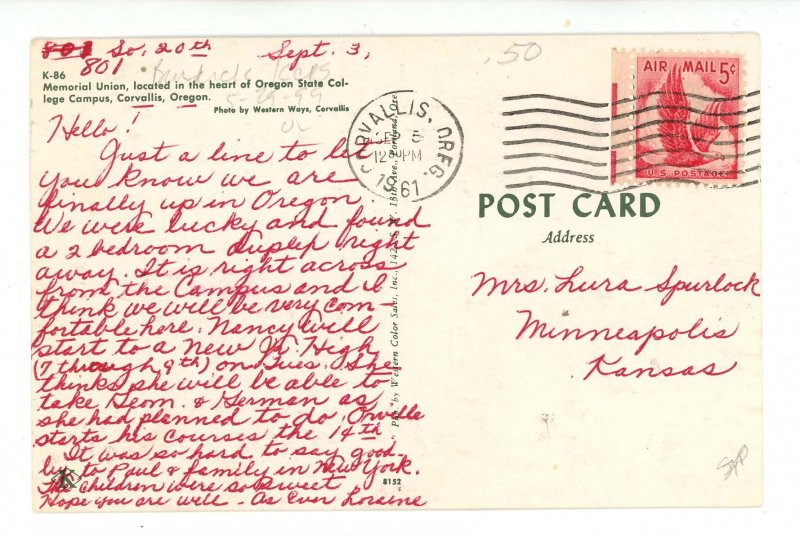 801 So, 20th Sept. 3,
801
K-86
Memorial Union, located in the heart of Oregon State Col-
lege Campus, Corvallis, Oregon.
Photo by Western Ways, Corvallis
Hello!
Just a line to let
you know we are
finally up in Oregon
We were lucky and found
a 2 bedroom duplex right
away. It is right across
from the Campus and I
think we will be very com-
fortable here. Nancy will
start to a new Jr. High
(7 through 9th) on Tues. She
thinks she will be able to
take Geom. & German as
she had planned to do. Orville
starts his courses the 14th.
It was so hard to say good-
by to Paul & family in New York.
The children were so sweet
Hope you are well - As Ever Loraine
8152
by Western Color Sales, Inc., 18th Ave., Portland, Ore
CORVALLIS, OREG.
12 30 PM
1961
.50
AIR MAIL 5¢
U.S. POSTAGE
POST CARD
Address
Mrs. Lura Spurlock
Minneapolis
Kansas